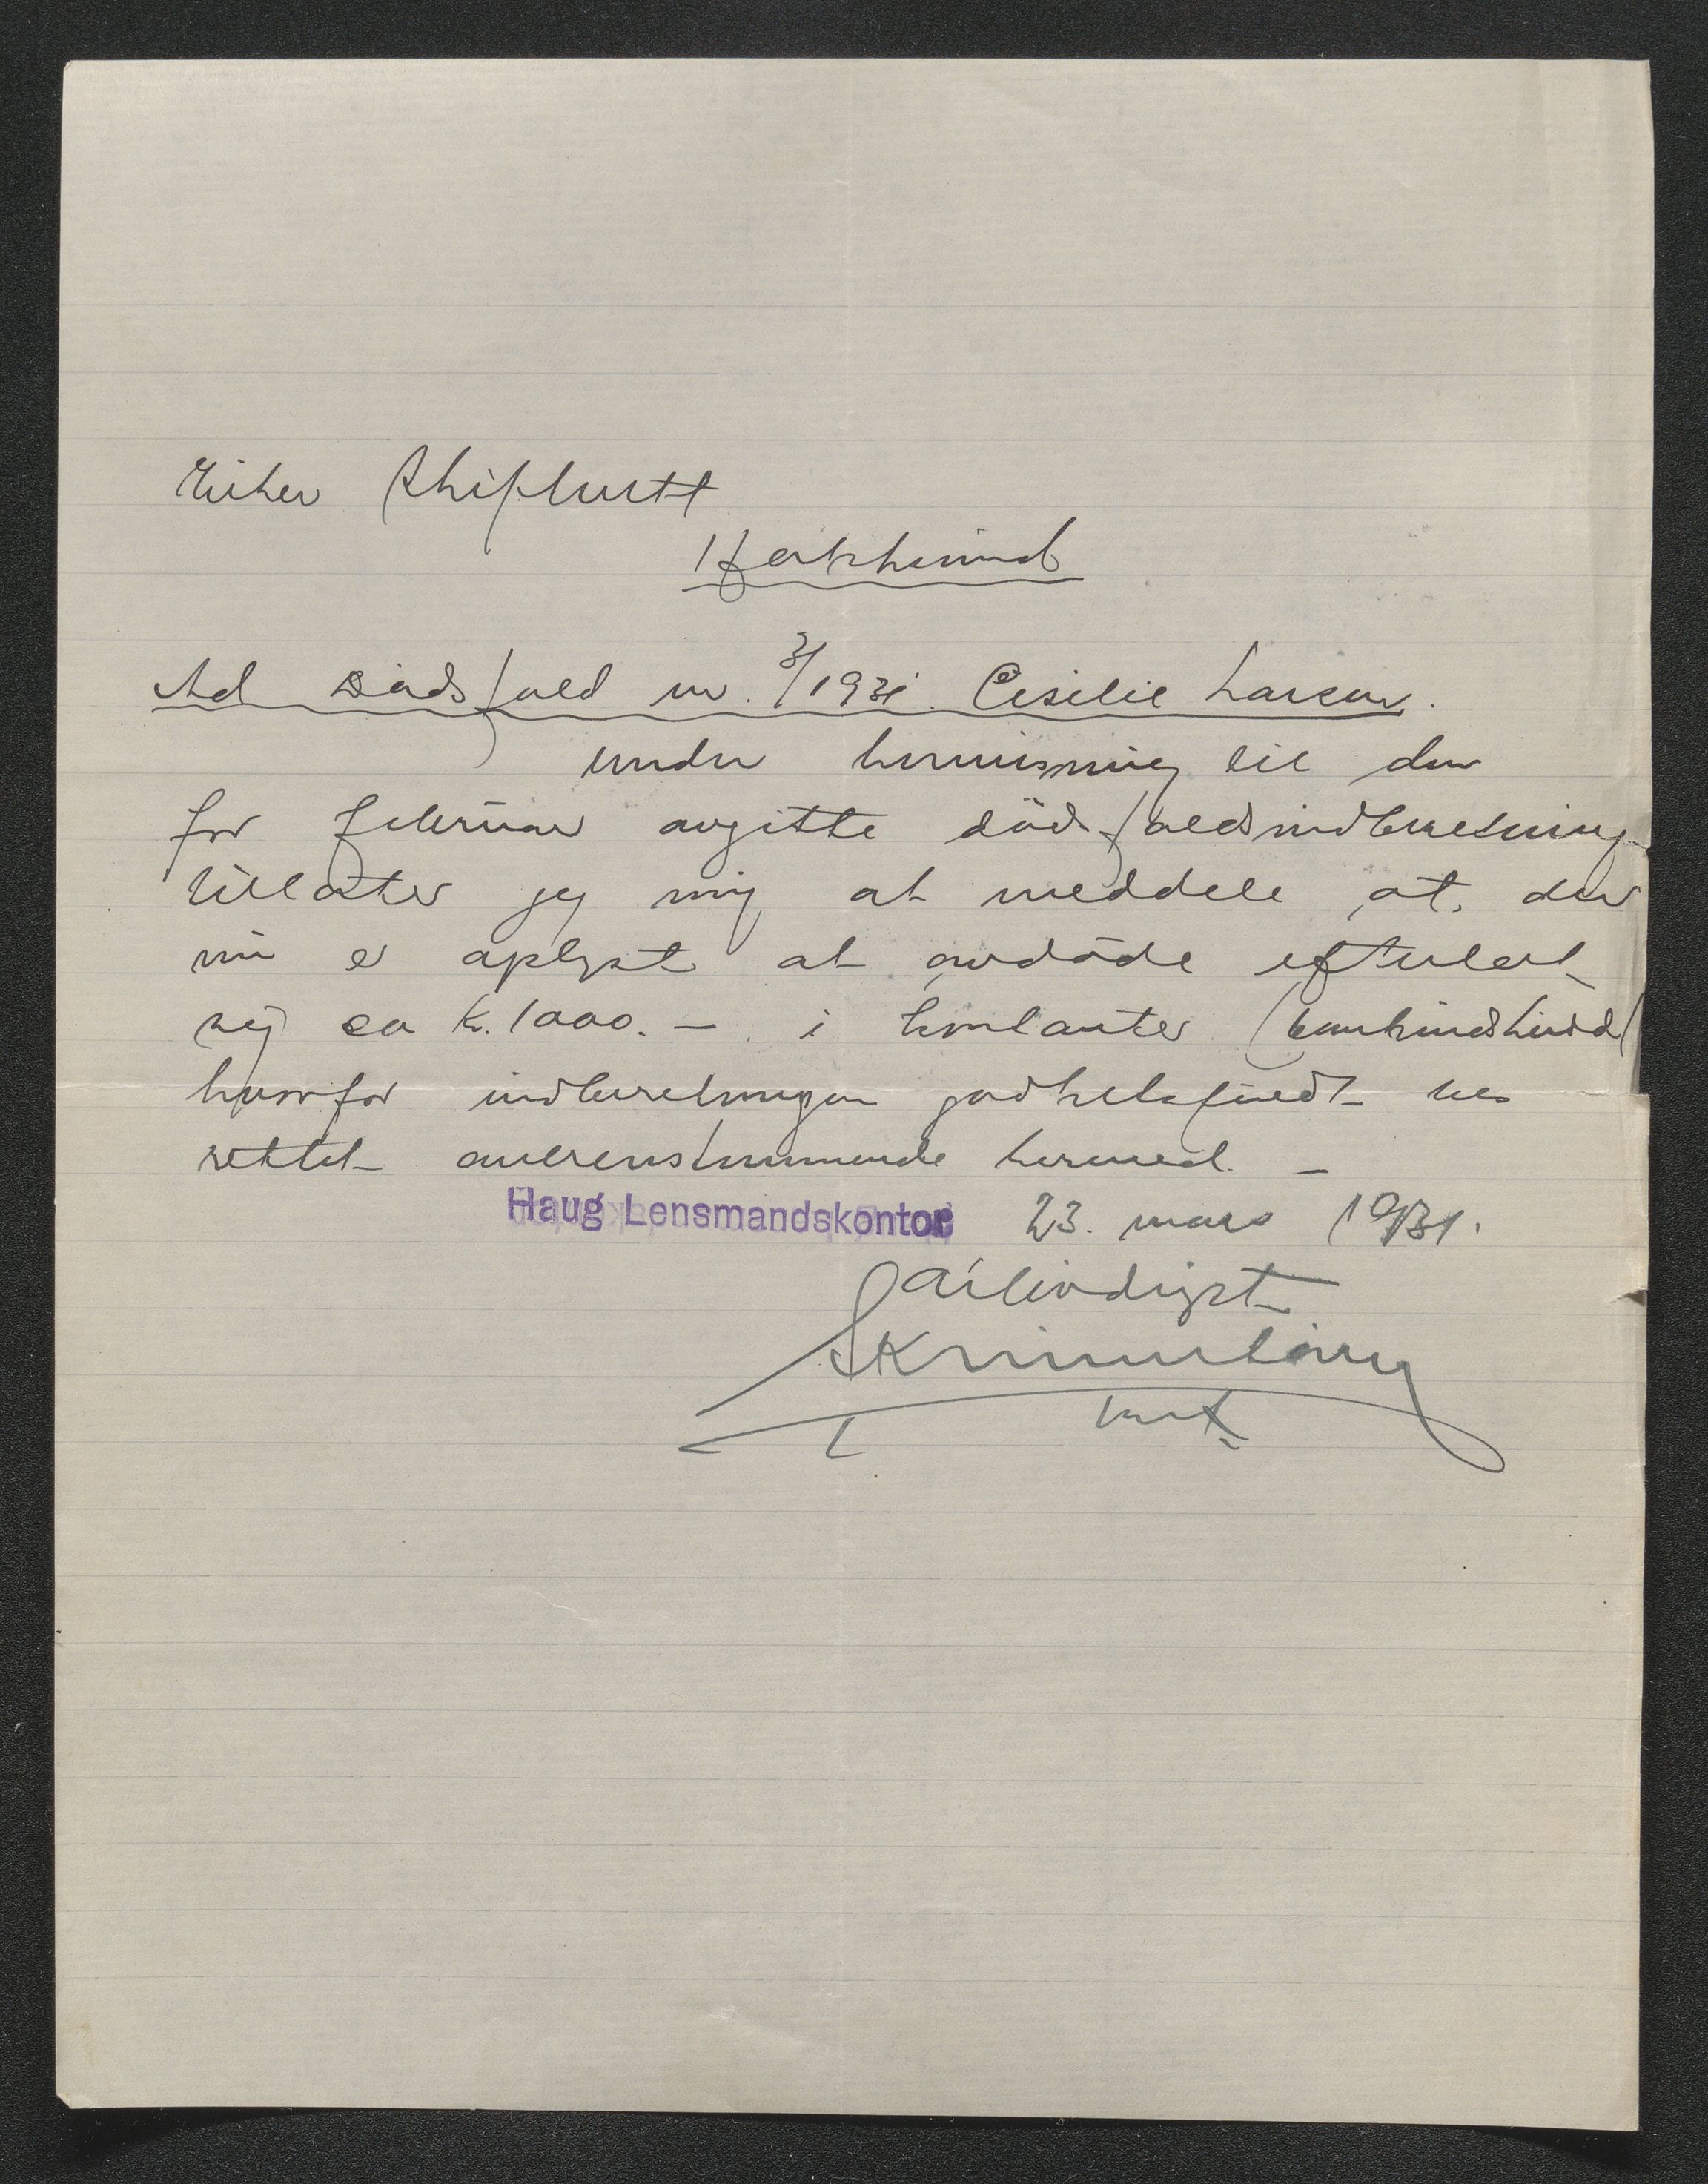 Eiker Skifterett
Hokksund
Ad Dødsfald nr. 3/1931. Cesilie Larsen.
Under henvisning til den
for februar avgitte dødsfaldsindberetning
tillater jeg mig at meddele, at det
nu er oplyst at avdøde efterlot
sig ca kr. 1000.- i kontanter (bankindskud)
hvorfor indberetningen godhetsfuldt bes
rettet overensstemmende hermed. -
Haug Lensmandskontor 23. mars 1931.
Ærbødigst